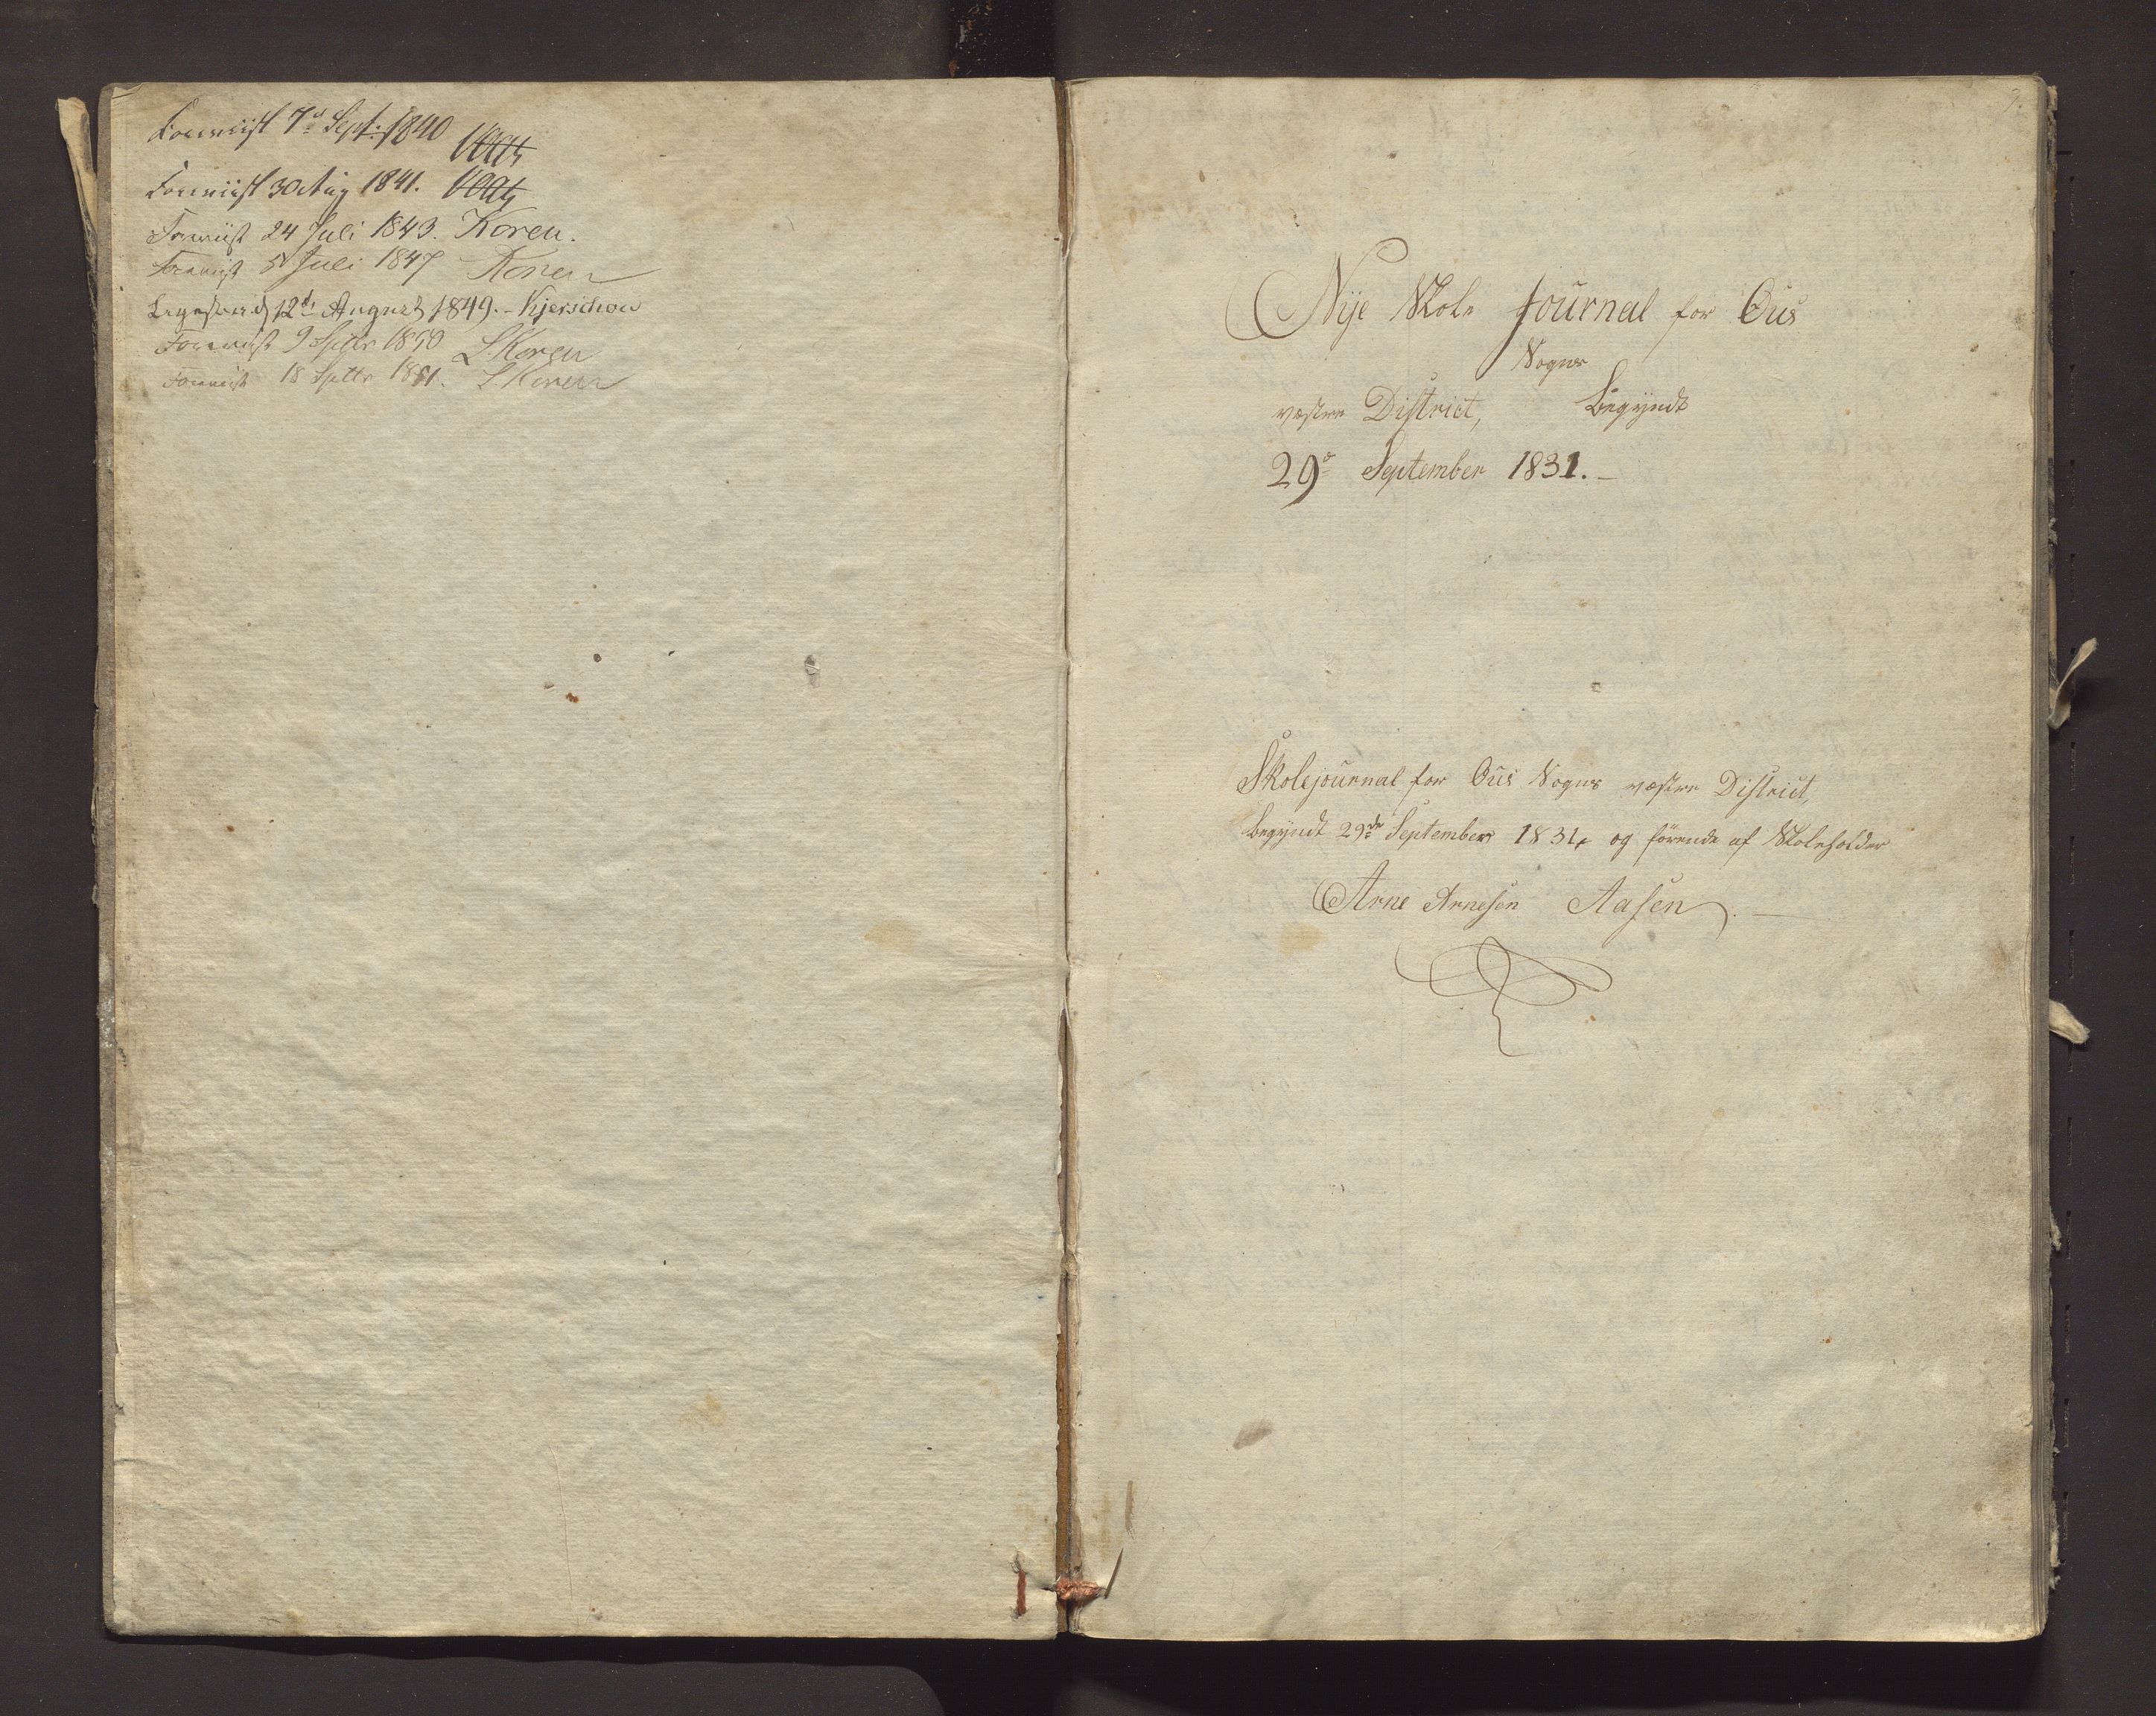 Foreviist 7de Sept: 1840
Foreviist 30 Aug 1841.
Foreviist 24 Juli 1843. Koren.
Foreviist 5 Juli 1847 Koren
12te August 1849. - Kjerschow
Foreviist 9 Septbr 1850 LKoren
Foreviist 18 Septbr 1851. LKoren
Nye Skole Journal for Øus
Sogns
vestre District, Begyndt
29de September 1831. -
Skolejournal for Øus Sogns vestre District,
begyndt 29de September 1831, og förende af Skoleholder
Arne Arnesen Aasen. -